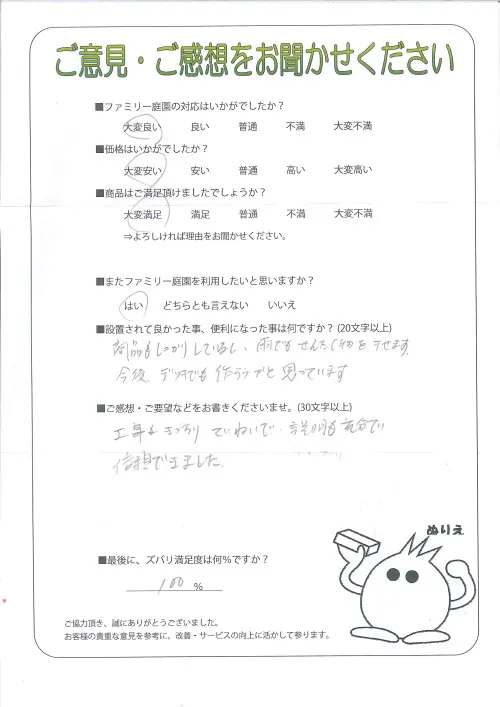 ご意見・ご感想をお聞かせください
■ファミリー庭園の対応はいかがでしたか？
大変良い 良い 普通 不満 大変不満
■価格はいかがでしたか？
大変安い 安い 普通 高い 大変高い
■商品はご満足頂けましたでしょうか？
大変満足 満足 普通 不満 大変不満
⇒よろしければ理由をお聞かせください。
■またファミリー庭園を利用したいと思いますか？
はい どちらとも言えない いいえ
■設置されて良かった事、便利になった事は何ですか？(20文字以上)
商品もしっかりしているし、雨でもせんたく物を干せます
今後、デッキでも作ろうかと思っています
■ご感想・ご要望などをお書きくださいませ。(30文字以上)
工事もきっちり ていねいで、説明も
信頼できました
ぬりえ
■最後に、ズバリ満足度は何％ですか？
100 %
ご協力頂き、誠にありがとうございました。
お客様の貴重な意見を参考に、改善・サービスの向上に活かして参ります。